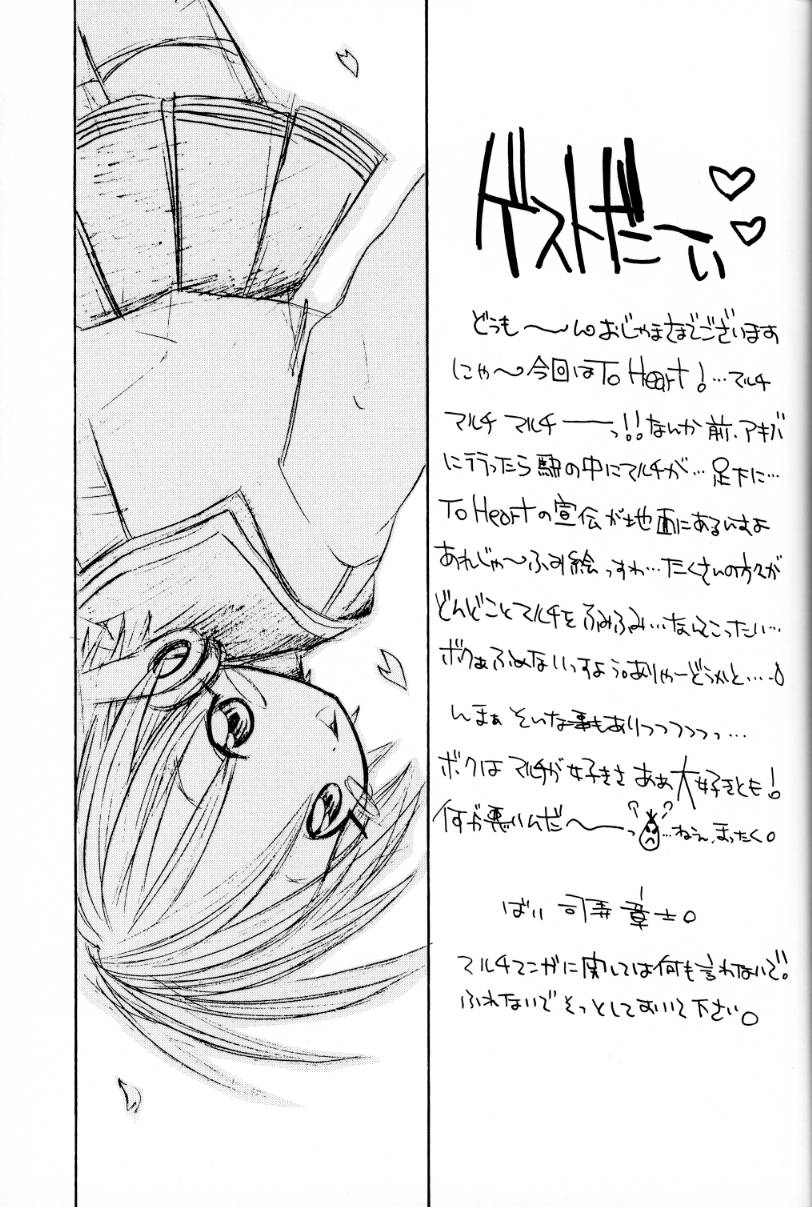 ゲストだーい
どうも〜ん。おじゃまさまでございます
にゃ〜今回はTo Heart!…マルチ
マルチ マルチーーっ!!なんか前、アキバ
に行ったら駅の中にマルチが…足下に…
To Heartの宣伝が地面にあるいすよ
あれじゃ〜ふす絵っすね…たくさんの方々が
どんどことマルチをふみふみ…なんてこったい…
ボクぁふめないっすよう。ありゃーどうかと…。
んまぁ そいな事もありつつつつっ…
ボクはマルチが好きさ ああ大好きとも!
何が悪いんだ〜ーっ …ねぇ、まったく。
ばい 章士。
マルチマンガに関しては何も言わないで。
ふれないでそっとしておいて下さい。